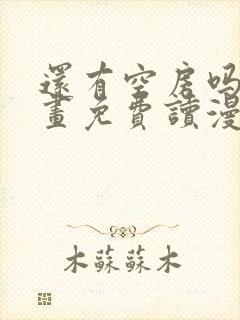 還有空房吗
畫免費讀漫
木蘇蘇木